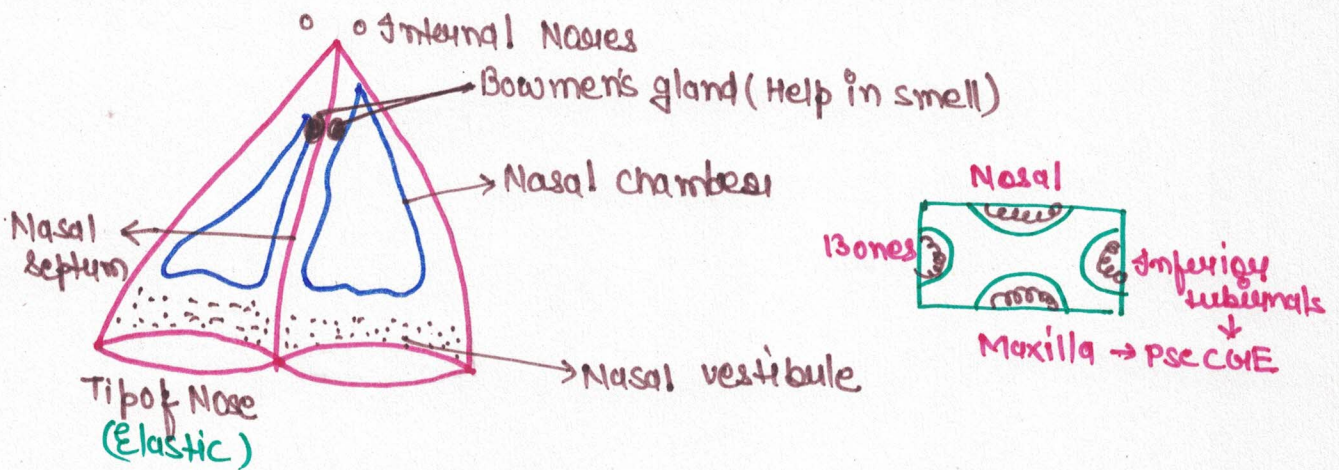 Internal Nares
Bowmen's gland (Help in smell)
Nasal chamber
Nasal
septum
Nasal vestibule
Tip of Nose
(Elastic)
Nasal
Bones
Inferior
Maxilla → PSCCGE